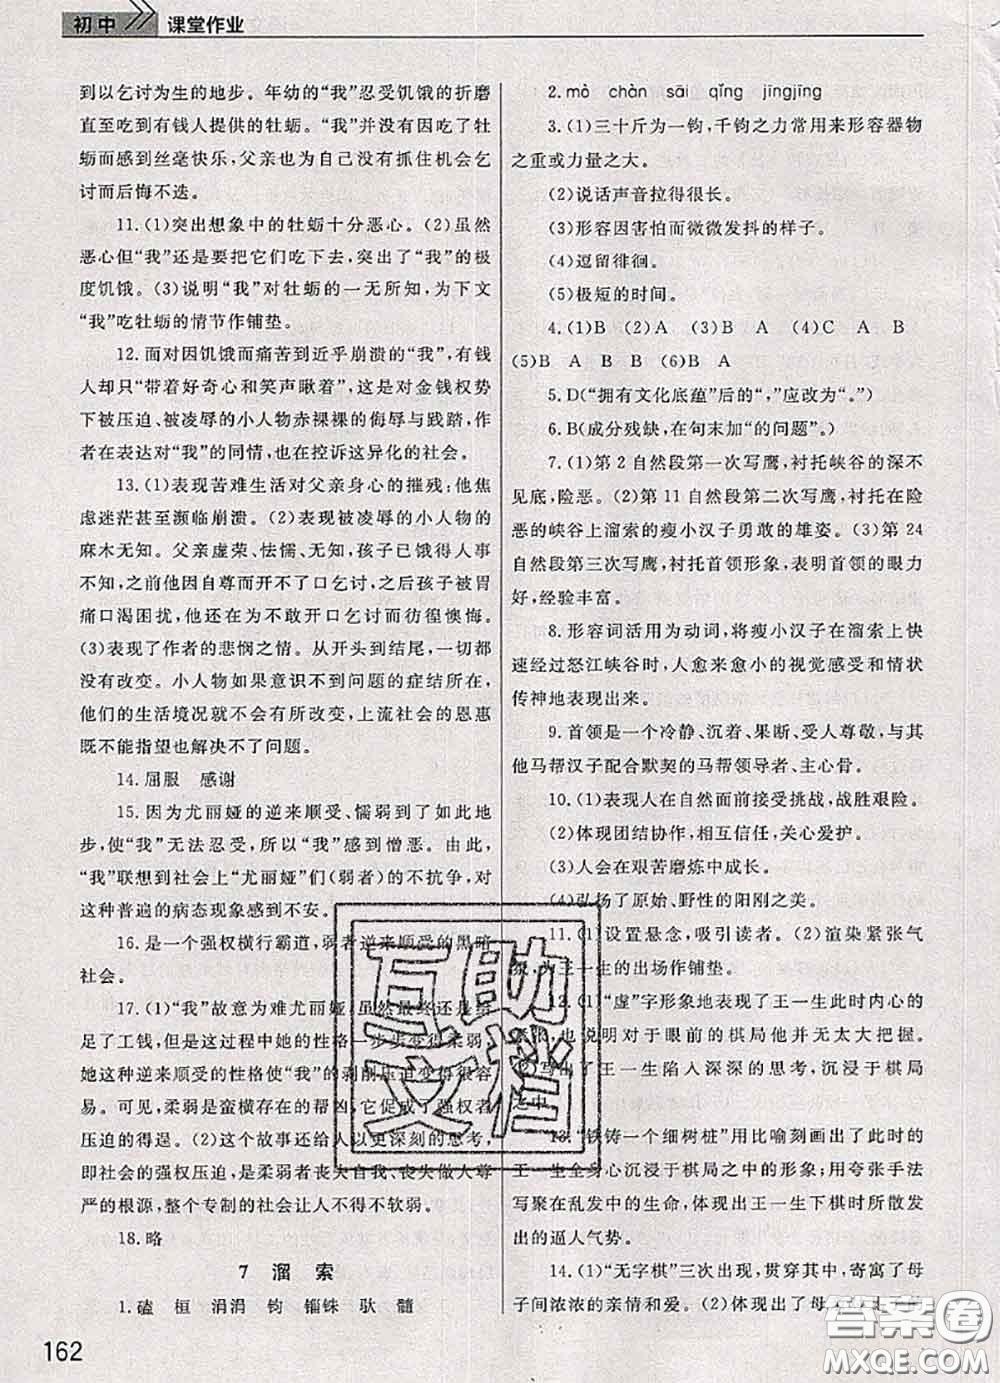 初中 课堂作业
到以乞讨为生的地步。年幼的“我”忍受饥饿的折磨
直至吃到了有钱人提供的牡蛎。“我”并没有因吃了牡
蛎而感到丝毫快乐，父亲也为自己没有抓住机会乞
讨而后悔不迭。
11.(1)突出想象中的牡蛎十分恶心。(2)虽然
恶心但“我”还是要把它们吃下去，突出了“我”的极
度饥饿。(3)说明“我”对牡蛎的一无所知，为下文
“我”吃牡蛎的情节作铺垫。
12.面对因饥饿而痛苦到近乎崩溃的“我”，有钱
人却只“带着好奇心和笑声瞅着”，这是对金钱权势
下被压迫、被凌辱的小人物赤裸裸的侮辱与践踏，作
者在表达对“我”的同情，也在控诉这异化的社会。
13.(1)表现苦难生活对父亲身心的摧残：他焦
虑迷茫甚至濒临崩溃。(2)表现被凌辱的小人物的
麻木无知。父亲虚荣、怯懦、无知，孩子已饿得人事
不知，他却因自尊而开不了口乞讨，之后孩子被胃
痛口渴困扰，他又在因不敢开口乞讨而彷徨懊悔。
(3)表现了作者的悲悯之情。从开头到结尾，一切都
没有改变。小人物如果意识不到问题的症结所在，
他们的生活境况就不会有所改变，上流社会的恩惠
既不能指望也解决不了问题。
14.屈服 感谢
15.因为尤丽娅的逆来顺受、懦弱到了如此地
步，使“我”无法忍受，所以“我”感到憎恶。由此，
“我”联想到社会上“尤丽娅”们(弱者)的不抗争，对
这种普遍的病态现象感到不安。
16.是一个强权横行霸道，弱者逆来顺受的黑暗
社会。
17.(1)“我”故意为难尤丽娅，虽然最终还是给
足了工钱，但这过程中她的性格一步步变得柔弱，
她这种逆来顺受的性格使“我”的剥削压迫变得很容
易。可见，柔弱是蛮横存在的帮凶，它促成了强权者
压迫的得逞。(2)这个故事还给人以更深刻的思考，
即社会的强权压迫，是柔弱者丧失自我、丧失做人尊
严的根源，整个专制的社会让人不得不软弱。
18.略
7 溜索
1.磕 桓 涓涓 钧 锱铢 驮 髓
2.mò chàn sāi qǐng jīngjīng
3.(1)三十斤为一钧，千钧之力常用来形容器物
之重或力量之大。
(2)说话声音拉得很长。
(3)形容因害怕而微微发抖的样子。
(4)逗留徘徊。
(5)极短的时间。
4.(1)B (2)A (3)B A (4)C A B
(5)B A B B (6)B A
5.D(“拥有文化底蕴”后的“，”应改为“。”)
6.B(成分残缺，在句末加“的问题”。)
7.(1)第2自然段第一次写鹰，衬托峡谷的深不
见底，险恶。(2)第11自然段第二次写鹰，衬托在险
恶的峡谷上溜索的瘦小汉子勇敢的雄姿。(3)第24
自然段第三次写鹰，衬托首领形象，表明首领的眼力
好，经验丰富。
8.形容词活用为动词，将瘦小汉子在溜索上快
速经过怒江峡谷时，人愈来愈小的视觉感受和情状
传神地表现出来。
9.首领是一个冷静、沉着、果断、受人尊敬，与其
他马帮汉子配合默契的马帮领导者、主心骨。
10.(1)表现人在自然面前接受挑战，战胜艰险。
(2)体现团结协作，相互信任，关心爱护。
(3)人会在艰苦磨炼中成长。
(4)弘扬了原始、野性的阳刚之美。
11.(1)设置悬念，吸引读者。(2)渲染紧张气
氛，为王一生的出场作铺垫。
12.(1)“虚”字形象地表现了王一生此时内心的
也说明对于眼前的棋局他并无太大把握。
体现出了王一生陷入深深的思考，沉浸于棋局
之中。
13.“铁铸一个细树桩”用比喻刻画出了此时的
王一生全身心沉浸于棋局之中的形象；用夸张手法
写聚在乱发中的生命，体现出王一生下棋时所散发
出的逼人气势。
14.(1)“无字棋”三次出现，贯穿其中，寄寓了母
子间浓浓的亲情和爱。(2)体现出了母
162
互助文档
答案圈
MXQE.COM